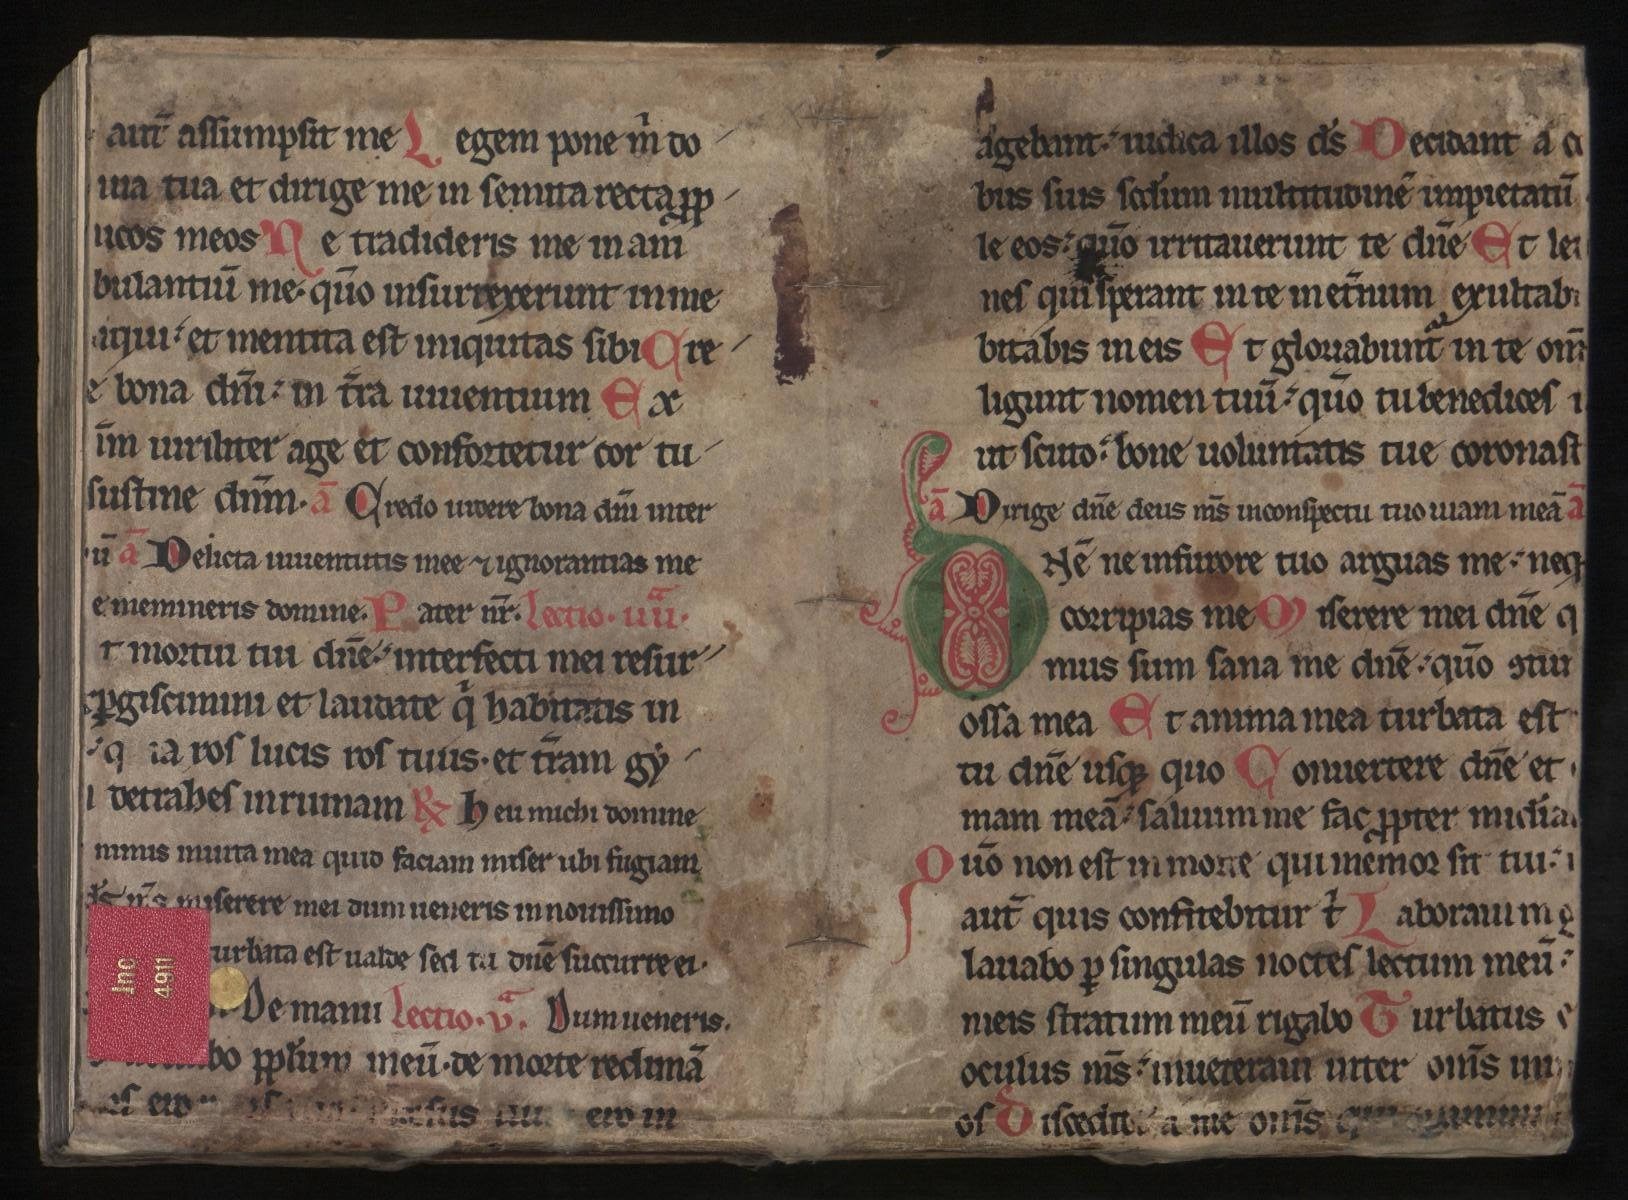 aut̄ assumpsit me L egem pone m̄ do
uia tua et dirige me in semita recta ꝓp
icos meos N e tradideris me in am̄
bulantiū me· qūo insurrexerunt in me
iqui· et mentita est iniquitas sibi C re
e bona dm̄i· in t̄ra uiuentium E x
īm uiriliter age et confortetur cor tu
sustine dnm̄· ā Credo uidere bona dm̄i inter
ū ā Delicta iuuentutis mee ⁊ ignorantias me
e memineris domine. P ater nr̄. Lectio· iiii·
t mortui tui dn̄e· interfecti mei resur
ꝑgiscimini et laudate q̄ habitatis in
q ia ros lucis ros tuus· et t̄ram gy
detrahes in ruinam ℟ Heu michi domine
nimis in uita mea quid faciam miser ubi fugiam
miserere mei dum ueneris in nouissimo
turbata est ualde sed tu dn̄e succurre ei·
De manu Lectio· v· Dum ueneris.
bo pp̄lum meū· de morte redimā
ero in
agebant· iudica illos ds̄ D ecidant a c
bus suis scd̄um multitudinē impietatū
le eos· qūo irritauerunt te dn̄e E t le
nes qui sperant in te in et̄num exultab
bitabis in eis E t gloriabunt̄ in te om̄
ligunt nomen tuū· qūo tu benedices i
ut scuto· bone uoluntatis tue coronast
ā Dirige dn̄e deus ms̄ in conspectu tuo uiam meā ā
Nē ne in furore tuo arguas me· neq
corripias me M iserere mei dn̄e q
mus sum sana me dn̄e· qūo ꝯtur
ossa mea E t anima mea turbata est
tu dn̄e usqꝫ quo C onuertere dn̄e et
mam meā· saluum me fac ꝓpter mic̄dia
Q uō non est in morte qui memor sit tui·
aut̄ quis confitebitur t̄ L aboraui in g
lauabo ꝑ singulas noctes lectum meū·
meis stratum meū rigabo T urbatus e
oculus ms̄· inueteraui inter om̄s in
os D iscedite a me om̄s qui
Inc
4911